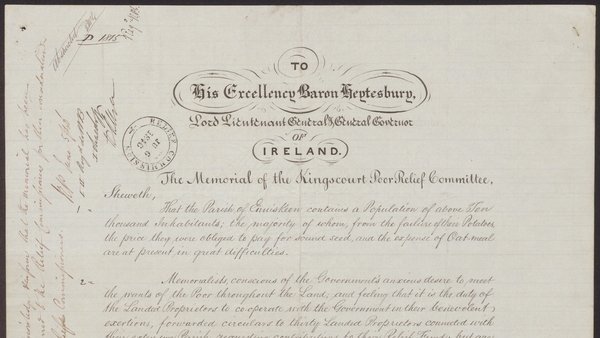 TO
His Excellency Baron Heytesbury,
Lord Lieutenant General & General Governor
OF
IRELAND.
The Memorial of the Kingscourt Poor Relief Committee,
Sheweth,
1 That the Parish of Enniskeen contains a Population of above Ten
thousand Inhabitants; the majority of whom, from the failure of their Potatoes
the price they were obliged to pay for sound seed, and the expense of Oatmeal
are at present, in great difficulties.
2 Memorialists, conscious of the Government's anxious desire to meet
the wants of the Poor throughout the Land, and feeling that it is the duty of
the Landed Proprietors to co-operate with the Government in their benevolent
exertions, forwarded circulars to thirty Landed Proprietors connected with
RELIEF COMMISSION
JU 6
1846
that the memorial has been
Relief Commissioners for their consideration